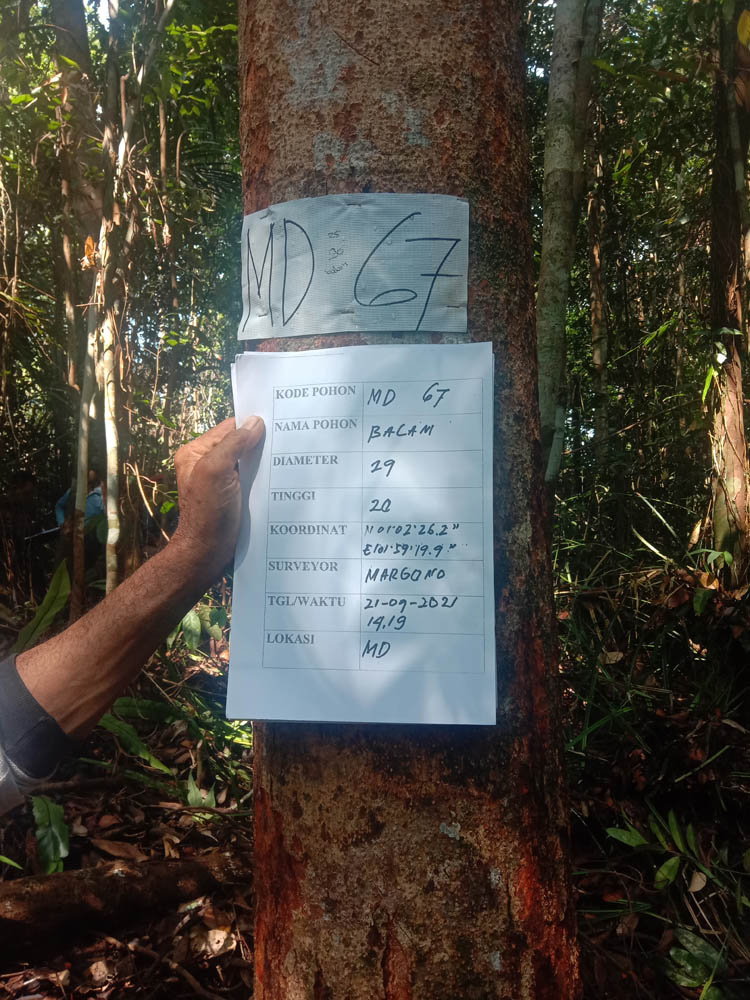 MD 67
KODE POHON MD 67
NAMA POHON BALAM
DIAMETER 29
TINGGI 20
KOORDINAT N 01°02'26.2"
E101°59'19.9"
SURVEYOR MARGONO
TGL/WAKTU 21-09-2021
14.19
LOKASI MD